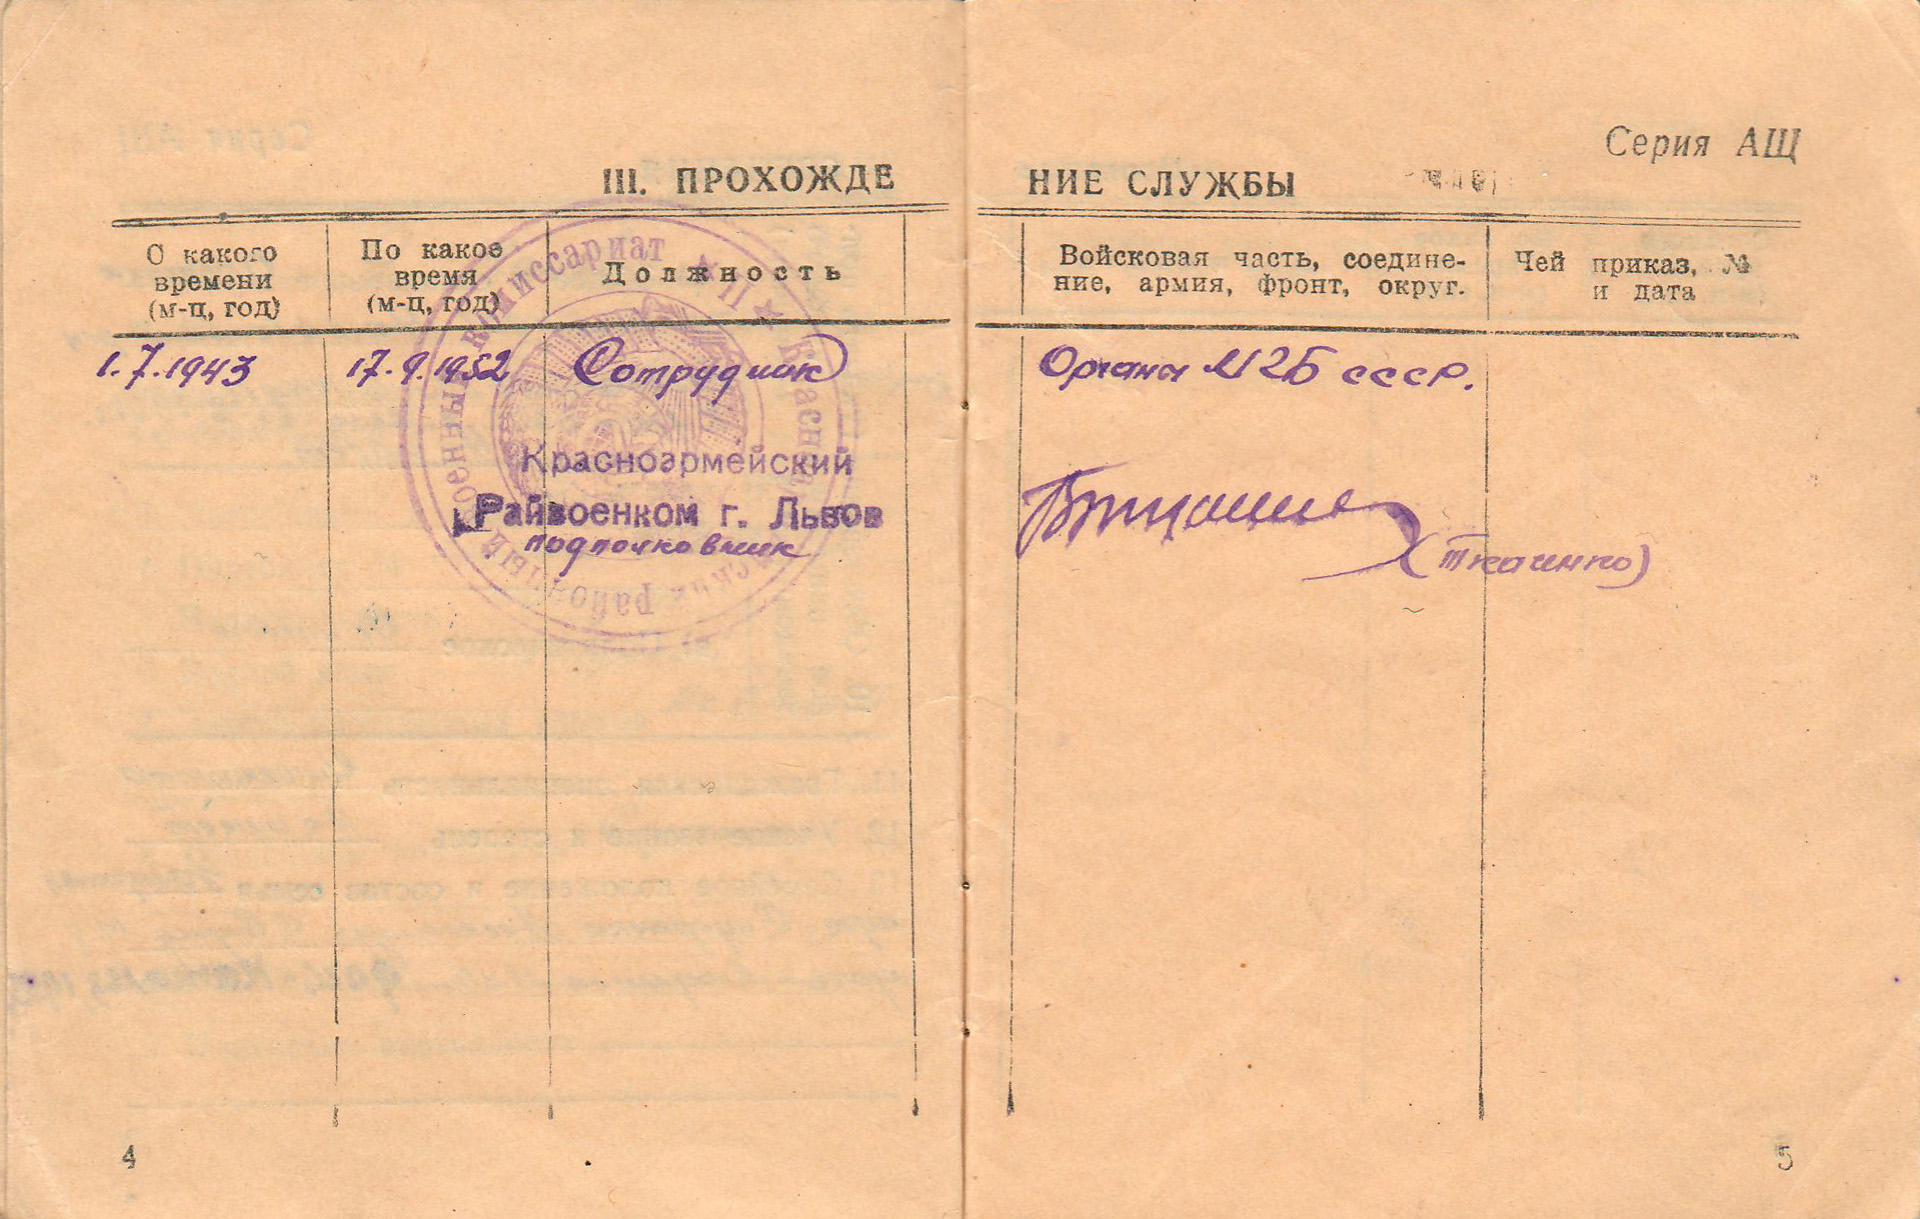 Серия АЩ
III. ПРОХОЖДЕ НИЕ СЛУЖБЫ
С какого
времени
(м-ц, год)
По какое
время
(м-ц, год)
Должность
Войсковая часть, соедине-
ние, армия, фронт, округ.
Чей приказ, №
и дата
1.7.1943 17.9.1952 Сотрудник Органы МГБ СССР.
Красноармейский
Райвоенком г. Львов
подполковник
(Ткаченко)
военный комиссариат
районный
4
5